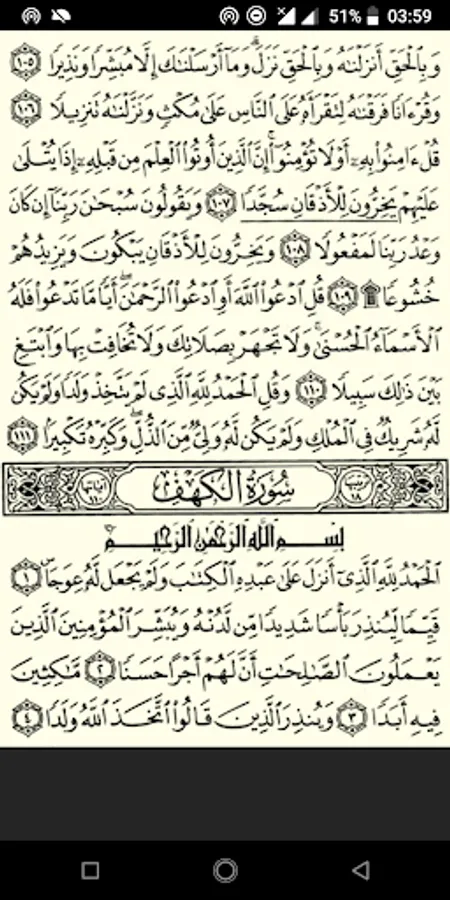 51% 03:59
وَبِٱلْحَقِّ أَنزَلْنَٰهُ وَبِٱلْحَقِّ نَزَلَ ۗ وَمَآ أَرْسَلْنَٰكَ إِلَّا مُبَشِّرًا وَنَذِيرًا ١٠٥
وَقُرْءَانًا فَرَقْنَٰهُ لِتَقْرَأَهُۥ عَلَى ٱلنَّاسِ عَلَىٰ مُكْثٍ وَنَزَّلْنَٰهُ تَنزِيلًا ١٠٦
قُلْ ءَامِنُوا۟ بِهِۦٓ أَوْ لَا تُؤْمِنُوٓا۟ ۚ إِنَّ ٱلَّذِينَ أُوتُوا۟ ٱلْعِلْمَ مِن قَبْلِهِۦٓ إِذَا يُتْلَىٰ
عَلَيْهِمْ يَخِرُّونَ لِلْأَذْقَانِ سُجَّدًا ١٠٧ وَيَقُولُونَ سُبْحَٰنَ رَبِّنَآ إِن كَانَ
وَعْدُ رَبِّنَا لَمَفْعُولًا ١٠٨ وَيَخِرُّونَ لِلْأَذْقَانِ يَبْكُونَ وَيَزِيدُهُمْ
خُشُوعًا ۩ ١٠٩ قُلِ ٱدْعُوا۟ ٱللَّهَ أَوِ ٱدْعُوا۟ ٱلرَّحْمَٰنَ ۖ أَيًّا مَّا تَدْعُوا۟ فَلَهُ
ٱلْأَسْمَآءُ ٱلْحُسْنَىٰ ۚ وَلَا تَجْهَرْ بِصَلَاتِكَ وَلَا تُخَافِتْ بِهَا وَٱبْتَغِ
بَيْنَ ذَٰلِكَ سَبِيلًا ١١٠ وَقُلِ ٱلْحَمْدُ لِلَّهِ ٱلَّذِى لَمْ يَتَّخِذْ وَلَدًا وَلَمْ يَكُن
لَّهُۥ شَرِيكٌ فِى ٱلْمُلْكِ وَلَمْ يَكُن لَّهُۥ وَلِىٌّ مِّنَ ٱلذُّلِّ ۖ وَكَبِّرْهُ تَكْبِيرًۢا ١١١
ترتيبها ١٨ سُورَةُ الكَهْفِ آياتها ١١٠
بِسْمِ ٱللَّهِ ٱلرَّحْمَٰنِ ٱلرَّحِيمِ
ٱلْحَمْدُ لِلَّهِ ٱلَّذِىٓ أَنزَلَ عَلَىٰ عَبْدِهِ ٱلْكِتَٰبَ وَلَمْ يَجْعَل لَّهُۥ عِوَجَا ۜ ١
قَيِّمًا لِّيُنذِرَ بَأْسًا شَدِيدًا مِّن لَّدُنْهُ وَيُبَشِّرَ ٱلْمُؤْمِنِينَ ٱلَّذِينَ
يَعْمَلُونَ ٱلصَّٰلِحَٰتِ أَنَّ لَهُمْ أَجْرًا حَسَنًا ٢ مَّٰكِثِينَ
فِيهِ أَبَدًا ٣ وَيُنذِرَ ٱلَّذِينَ قَالُوا۟ ٱتَّخَذَ ٱللَّهُ وَلَدًا ٤